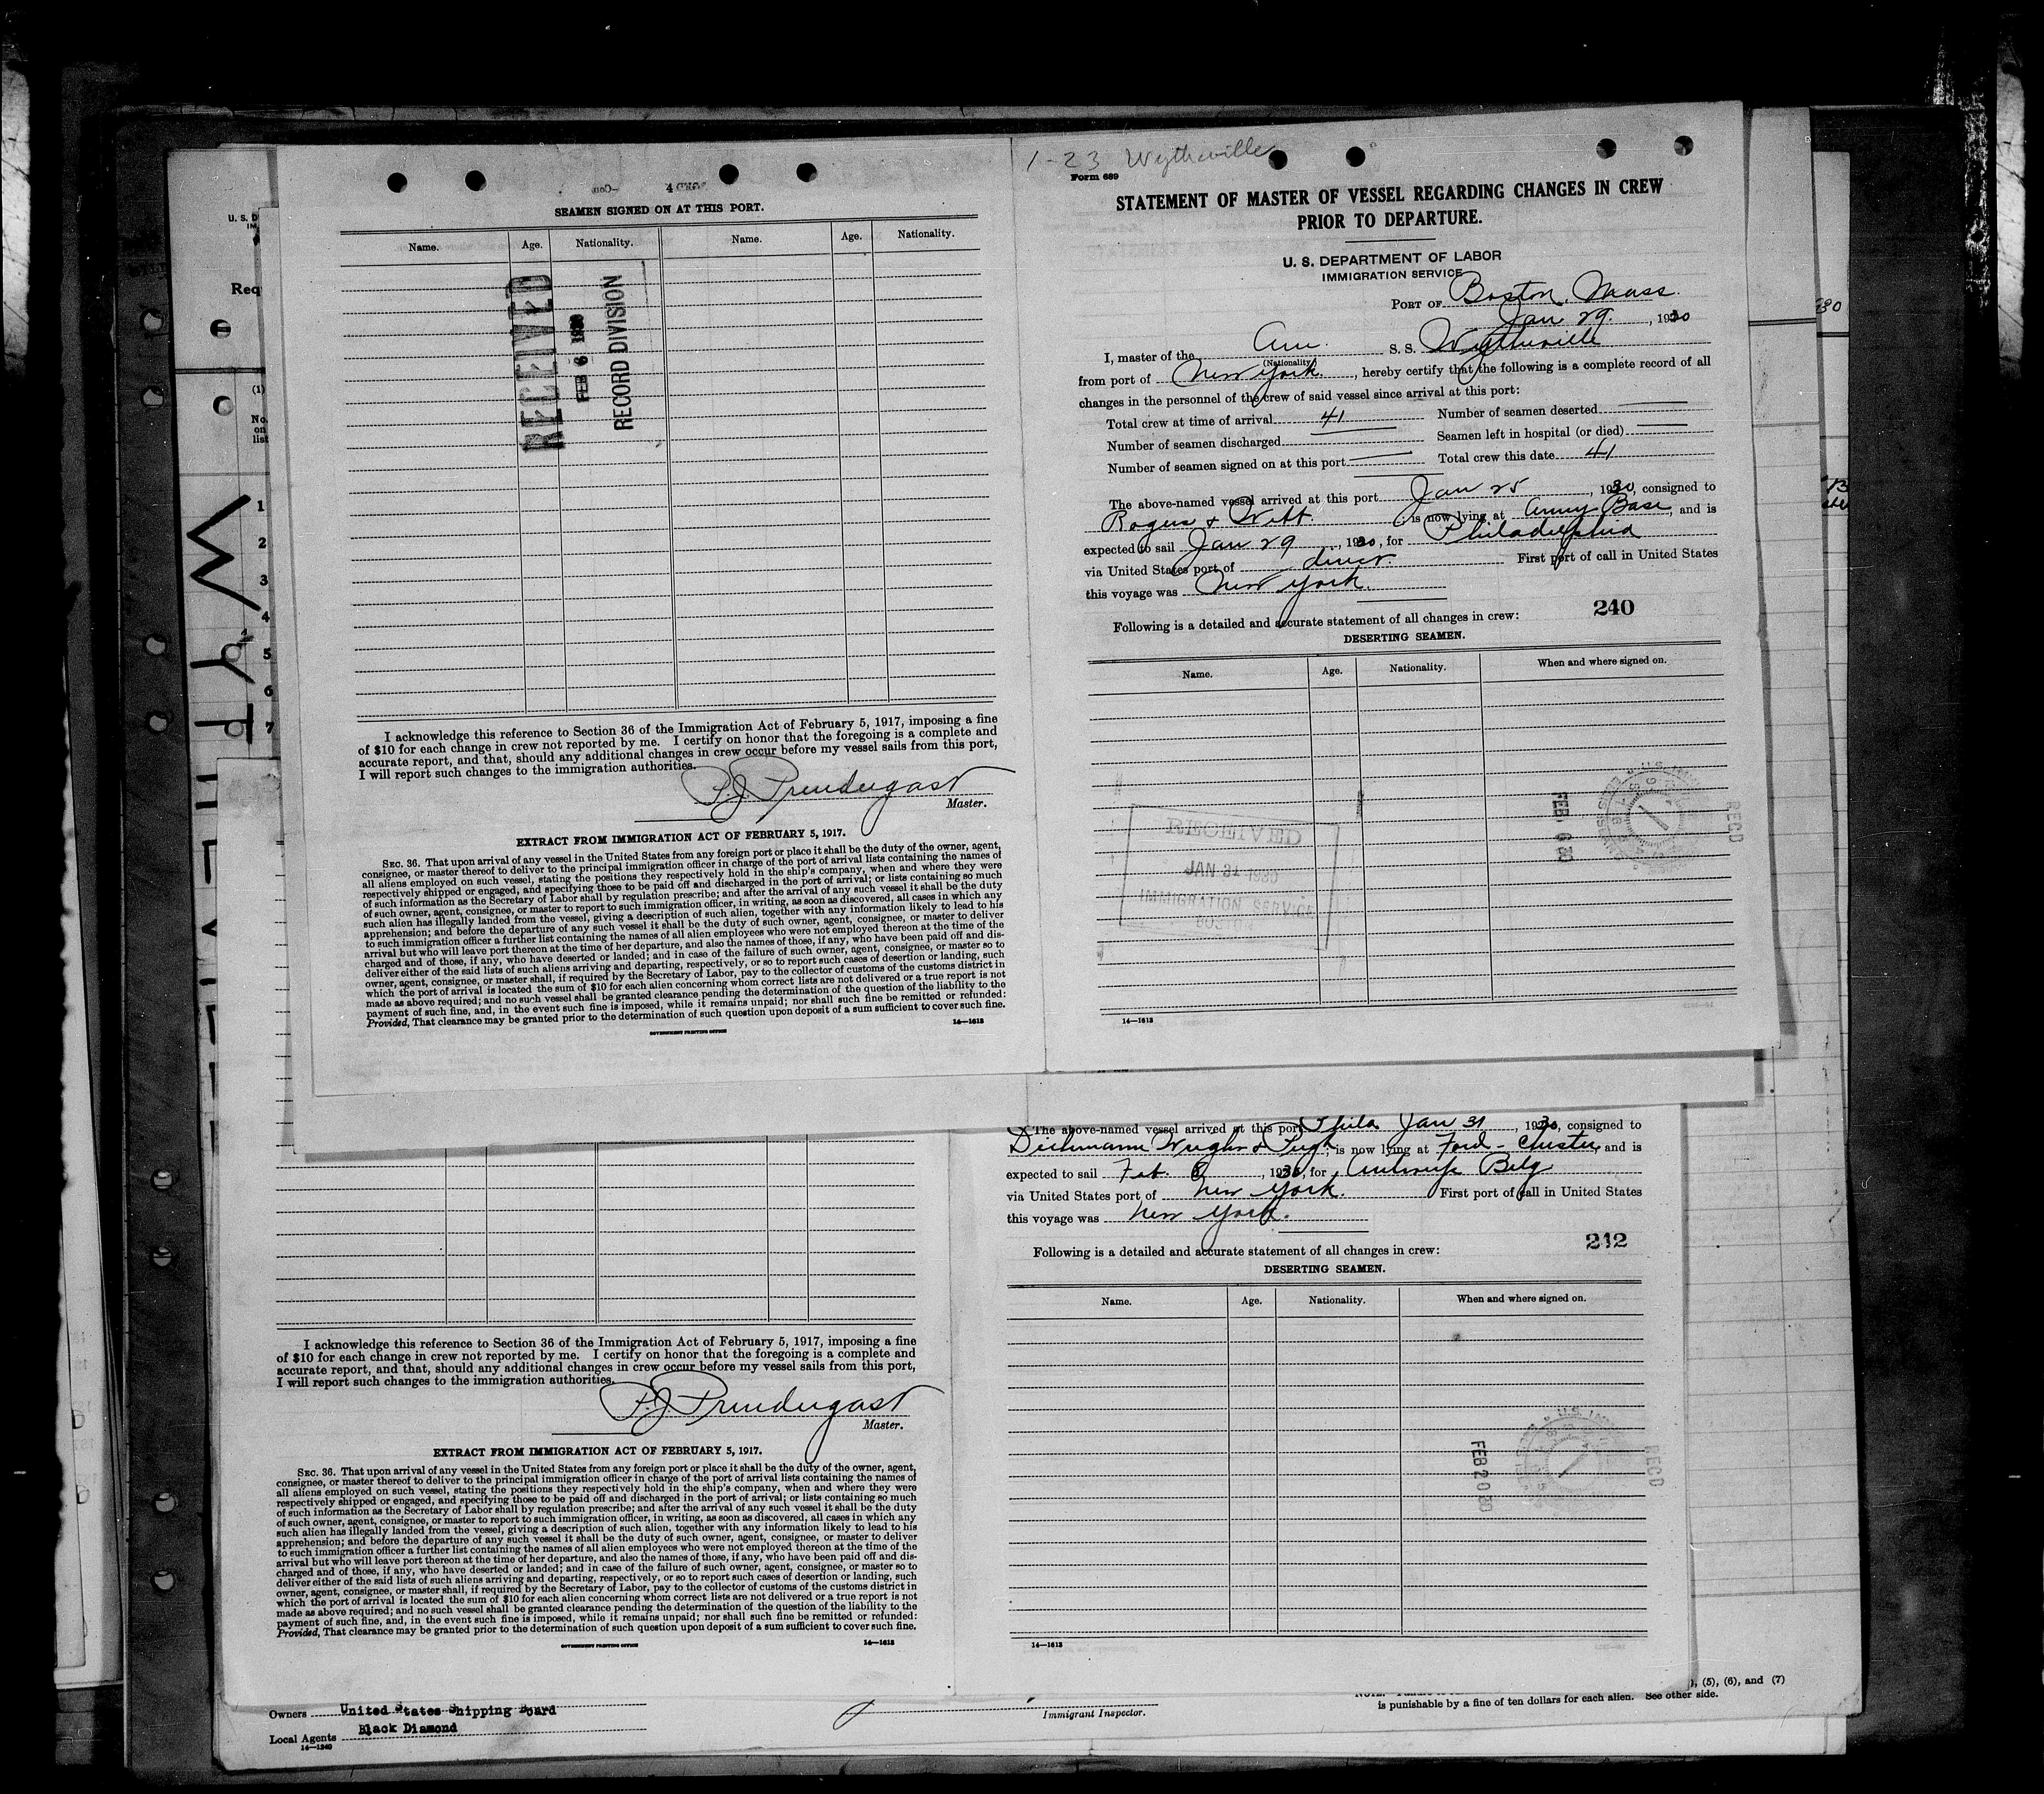 SEAMEN SIGNED ON AT THIS PORT.
Name. Age. Nationality. Name. Age. Nationality.
RECEIVED
FEB 6 1930
RECORD DIVISION
I acknowledge this reference to Section 36 of the Immigration Act of February 5, 1917, imposing a fine
of $10 for each change in crew not reported by me. I certify on honor that the foregoing is a complete and
accurate report, and that, should any additional changes in crew occur before my vessel sails from this port,
I will report such changes to the immigration authorities.
P.J. Prendergast
Master.
EXTRACT FROM IMMIGRATION ACT OF FEBRUARY 5, 1917.
SEC. 36. That upon arrival of any vessel in the United States from any foreign port or place it shall be the duty of the owner, agent,
consignee, or master thereof to deliver to the principal immigration officer in charge of the port of arrival lists containing the names of
all aliens employed on such vessel, stating the positions they respectively hold in the ship's company, when and where they were
respectively shipped or engaged, and specifying those to be paid off and discharged in the port of arrival; or lists containing so much
of such information as the Secretary of Labor shall by regulation prescribe; and after the arrival of any such vessel it shall be the duty
of such owner, agent, consignee, or master to report to such immigration officer, in writing, as soon as discovered, all cases in which any
such alien has illegally landed from the vessel, giving a description of such alien, together with any information likely to lead to his
apprehension; and before the departure of any such vessel it shall be the duty of such owner, agent, consignee, or master to deliver
to such immigration officer a further list containing the names of all alien employees who were not employed thereon at the time of the
arrival but who will leave port thereon at the time of her departure, and also the names of those, if any, who have been paid off and dis-
charged and of those, if any, who have deserted or landed; and in case of the failure of such owner, agent, consignee, or master so to
deliver either of the said lists of such aliens arriving and departing, respectively, or so to report such cases of desertion or landing, such
owner, agent, consignee, or master shall, if required by the Secretary of Labor, pay to the collector of customs of the customs district in
which the port of arrival is located the sum of $10 for each alien concerning whom correct lists are not delivered or a true report is not
made as above required; and no such vessel shall be granted clearance pending the determination of the question of the liability to the
payment of such fine, and, in the event such fine is imposed, while it remains unpaid; nor shall such fine be remitted or refunded:
Provided, That clearance may be granted prior to the determination of such question upon deposit of a sum sufficient to cover such fine.
GOVERNMENT PRINTING OFFICE 14—1613
1-23 Wytheville
Form 689
STATEMENT OF MASTER OF VESSEL REGARDING CHANGES IN CREW
PRIOR TO DEPARTURE.
U. S. DEPARTMENT OF LABOR
IMMIGRATION SERVICE
PORT OF Boston, Mass.
Jan 29, 1930
I, master of the Am. S. S. Wytheville
(Nationality)
from port of New York, hereby certify that the following is a complete record of all
changes in the personnel of the crew of said vessel since arrival at this port:
Total crew at time of arrival 41 Number of seamen deserted
Number of seamen discharged Seamen left in hospital (or died)
Number of seamen signed on at this port Total crew this date 41
The above-named vessel arrived at this port Jan 25, 1930, consigned to
Rogers & Webb; is now lying at Army Base, and is
expected to sail Jan 29, 1930, for Philadelphia
via United States port of direct. First port of call in United States
this voyage was New York.
240
Following is a detailed and accurate statement of all changes in crew:
DESERTING SEAMEN.
Name. Age. Nationality. When and where signed on.
FEB 6 30
RECD
RECEIVED
JAN 31 1930
IMMIGRATION SERVICE
BOSTON
14—1613
The above-named vessel arrived at this port Phila Jan 31, 1930, consigned to
Dichmann Wright & Pugh; is now lying at Ford - Chester, and is
expected to sail Feb. 8, 1930, for Antwerp Belg
via United States port of New York. First port of call in United States
this voyage was New York.
242
Following is a detailed and accurate statement of all changes in crew:
DESERTING SEAMEN.
Name. Age. Nationality. When and where signed on.
FEB 20 30
RECD
14—1613
I acknowledge this reference to Section 36 of the Immigration Act of February 5, 1917, imposing a fine
of $10 for each change in crew not reported by me. I certify on honor that the foregoing is a complete and
accurate report, and that, should any additional changes in crew occur before my vessel sails from this port,
I will report such changes to the immigration authorities.
P.J. Prendergast
Master.
EXTRACT FROM IMMIGRATION ACT OF FEBRUARY 5, 1917.
SEC. 36. That upon arrival of any vessel in the United States from any foreign port or place it shall be the duty of the owner, agent,
consignee, or master thereof to deliver to the principal immigration officer in charge of the port of arrival lists containing the names of
all aliens employed on such vessel, stating the positions they respectively hold in the ship's company, when and where they were
respectively shipped or engaged, and specifying those to be paid off and discharged in the port of arrival; or lists containing so much
of such information as the Secretary of Labor shall by regulation prescribe; and after the arrival of any such vessel it shall be the duty
of such owner, agent, consignee, or master to report to such immigration officer, in writing, as soon as discovered, all cases in which any
such alien has illegally landed from the vessel, giving a description of such alien, together with any information likely to lead to his
apprehension; and before the departure of any such vessel it shall be the duty of such owner, agent, consignee, or master to deliver
to such immigration officer a further list containing the names of all alien employees who were not employed thereon at the time of the
arrival but who will leave port thereon at the time of her departure, and also the names of those, if any, who have been paid off and dis-
charged and of those, if any, who have deserted or landed; and in case of the failure of such owner, agent, consignee, or master so to
deliver either of the said lists of such aliens arriving and departing, respectively, or so to report such cases of desertion or landing, such
owner, agent, consignee, or master shall, if required by the Secretary of Labor, pay to the collector of customs of the customs district in
which the port of arrival is located the sum of $10 for each alien concerning whom correct lists are not delivered or a true report is not
made as above required; and no such vessel shall be granted clearance pending the determination of the question of the liability to the
payment of such fine, and, in the event such fine is imposed, while it remains unpaid; nor shall such fine be remitted or refunded:
Provided, That clearance may be granted prior to the determination of such question upon deposit of a sum sufficient to cover such fine.
GOVERNMENT PRINTING OFFICE 14—1613
Owners United States Shipping Board
Local Agents Black Diamond
14—1240
Immigrant Inspector.
(5), (6), and (7)
is punishable by a fine of ten dollars for each alien. See other side.
(1)
No.
on
list
1
2
3
4
5
6
7